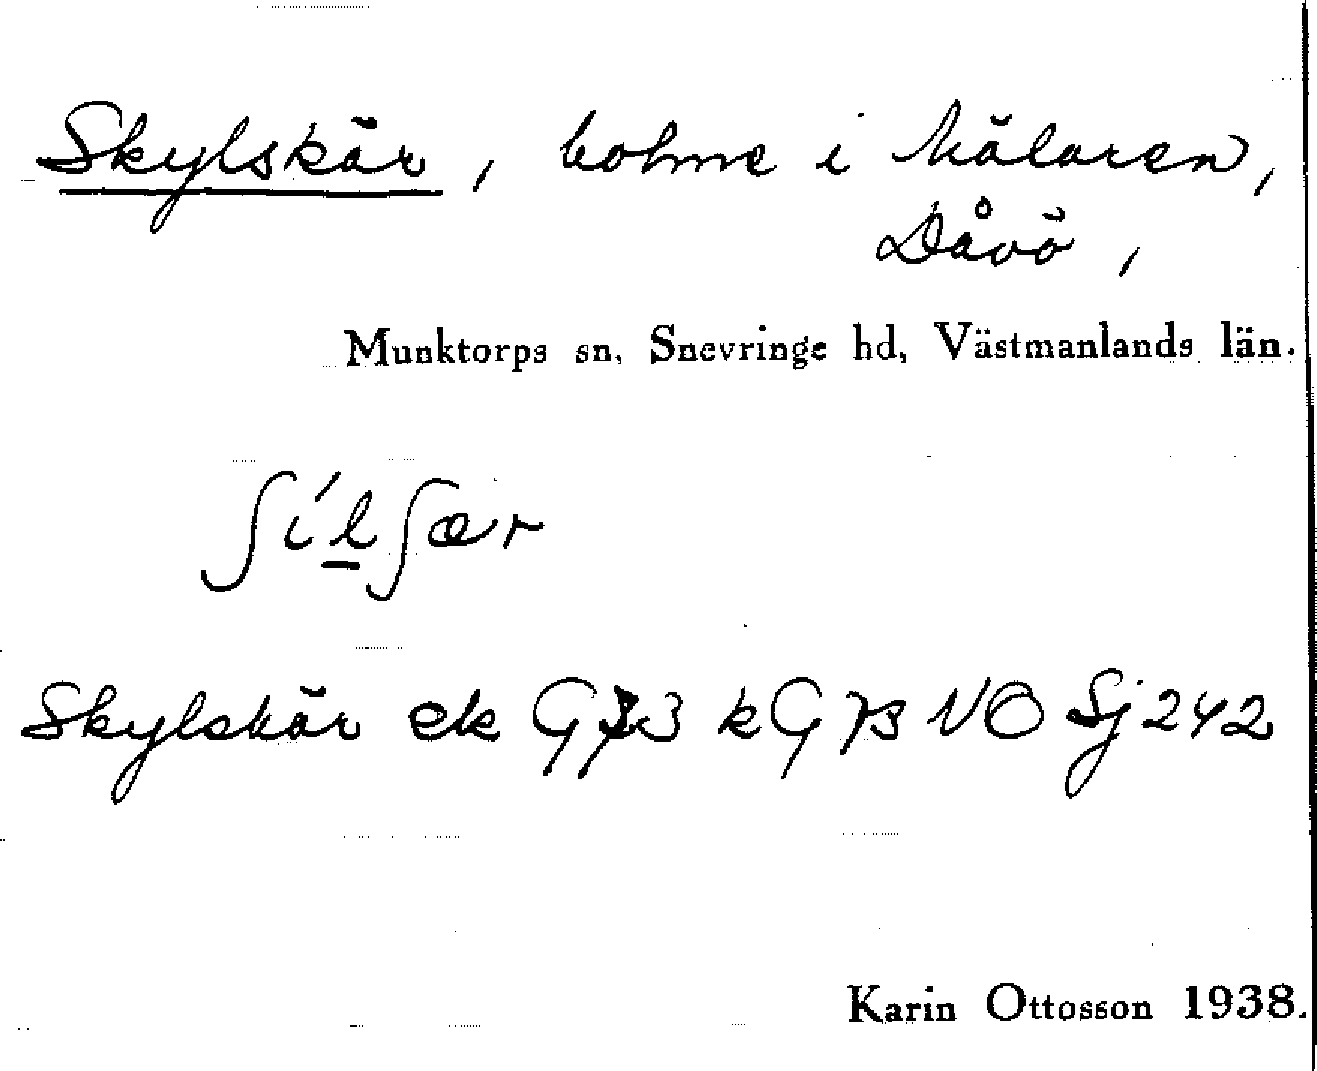 Skylskär, holme i Mälaren,
Dåvö,
Munktorps sn, Snevringe hd, Västmanlands län.
ʃílʃær
Skylskär ek G 73 kG 73 NO Sj 242
Karin Ottosson 1938.